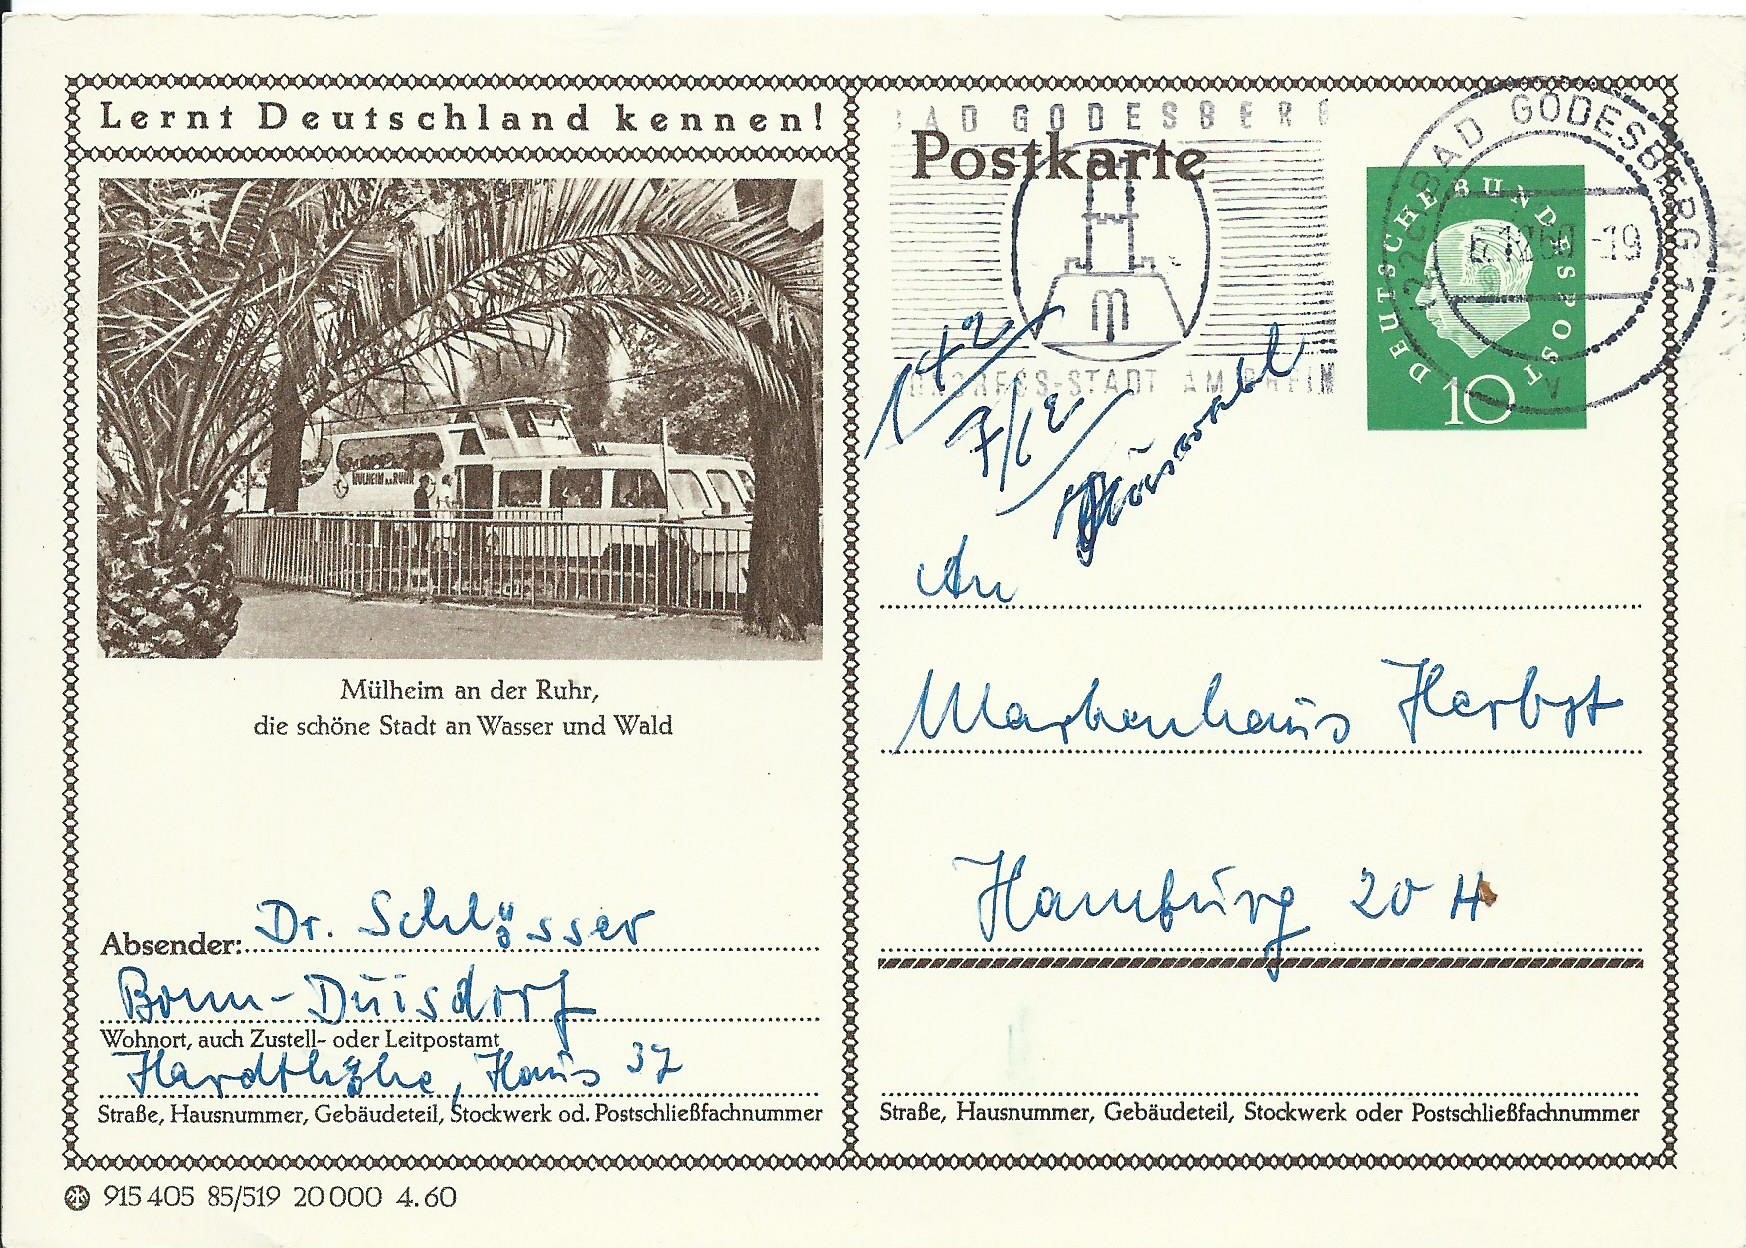 Lernt Deutschland kennen!
MÜLHEIM A.D. RUHR
Mülheim an der Ruhr,
die schöne Stadt an Wasser und Wald
Absender: Dr. Schlösser
Bonn-Duisdorf
Wohnort, auch Zustell- oder Leitpostamt
Hardthöhe, Haus 37
Straße, Hausnummer, Gebäudeteil, Stockwerk od. Postschließfachnummer
915 405 85/519 20 000 4.60
BAD GODESBERG
Postkarte
KONGRESS-STADT AM RHEIN
BAD GODESBERG 1
-19
DEUTSCHE BUNDESPOST
10
142
7/12
An
Markenhaus Herbst
Hamburg 20 H
Straße, Hausnummer, Gebäudeteil, Stockwerk oder Postschließfachnummer